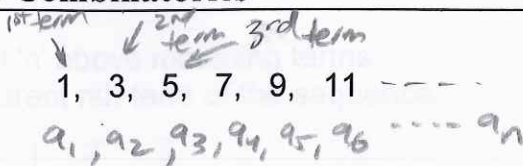 1st term 2nd term 3rd term
1, 3, 5, 7, 9, 11 ----
a₁, a₂, a₃, a₄, a₅, a₆ ---- aₙ